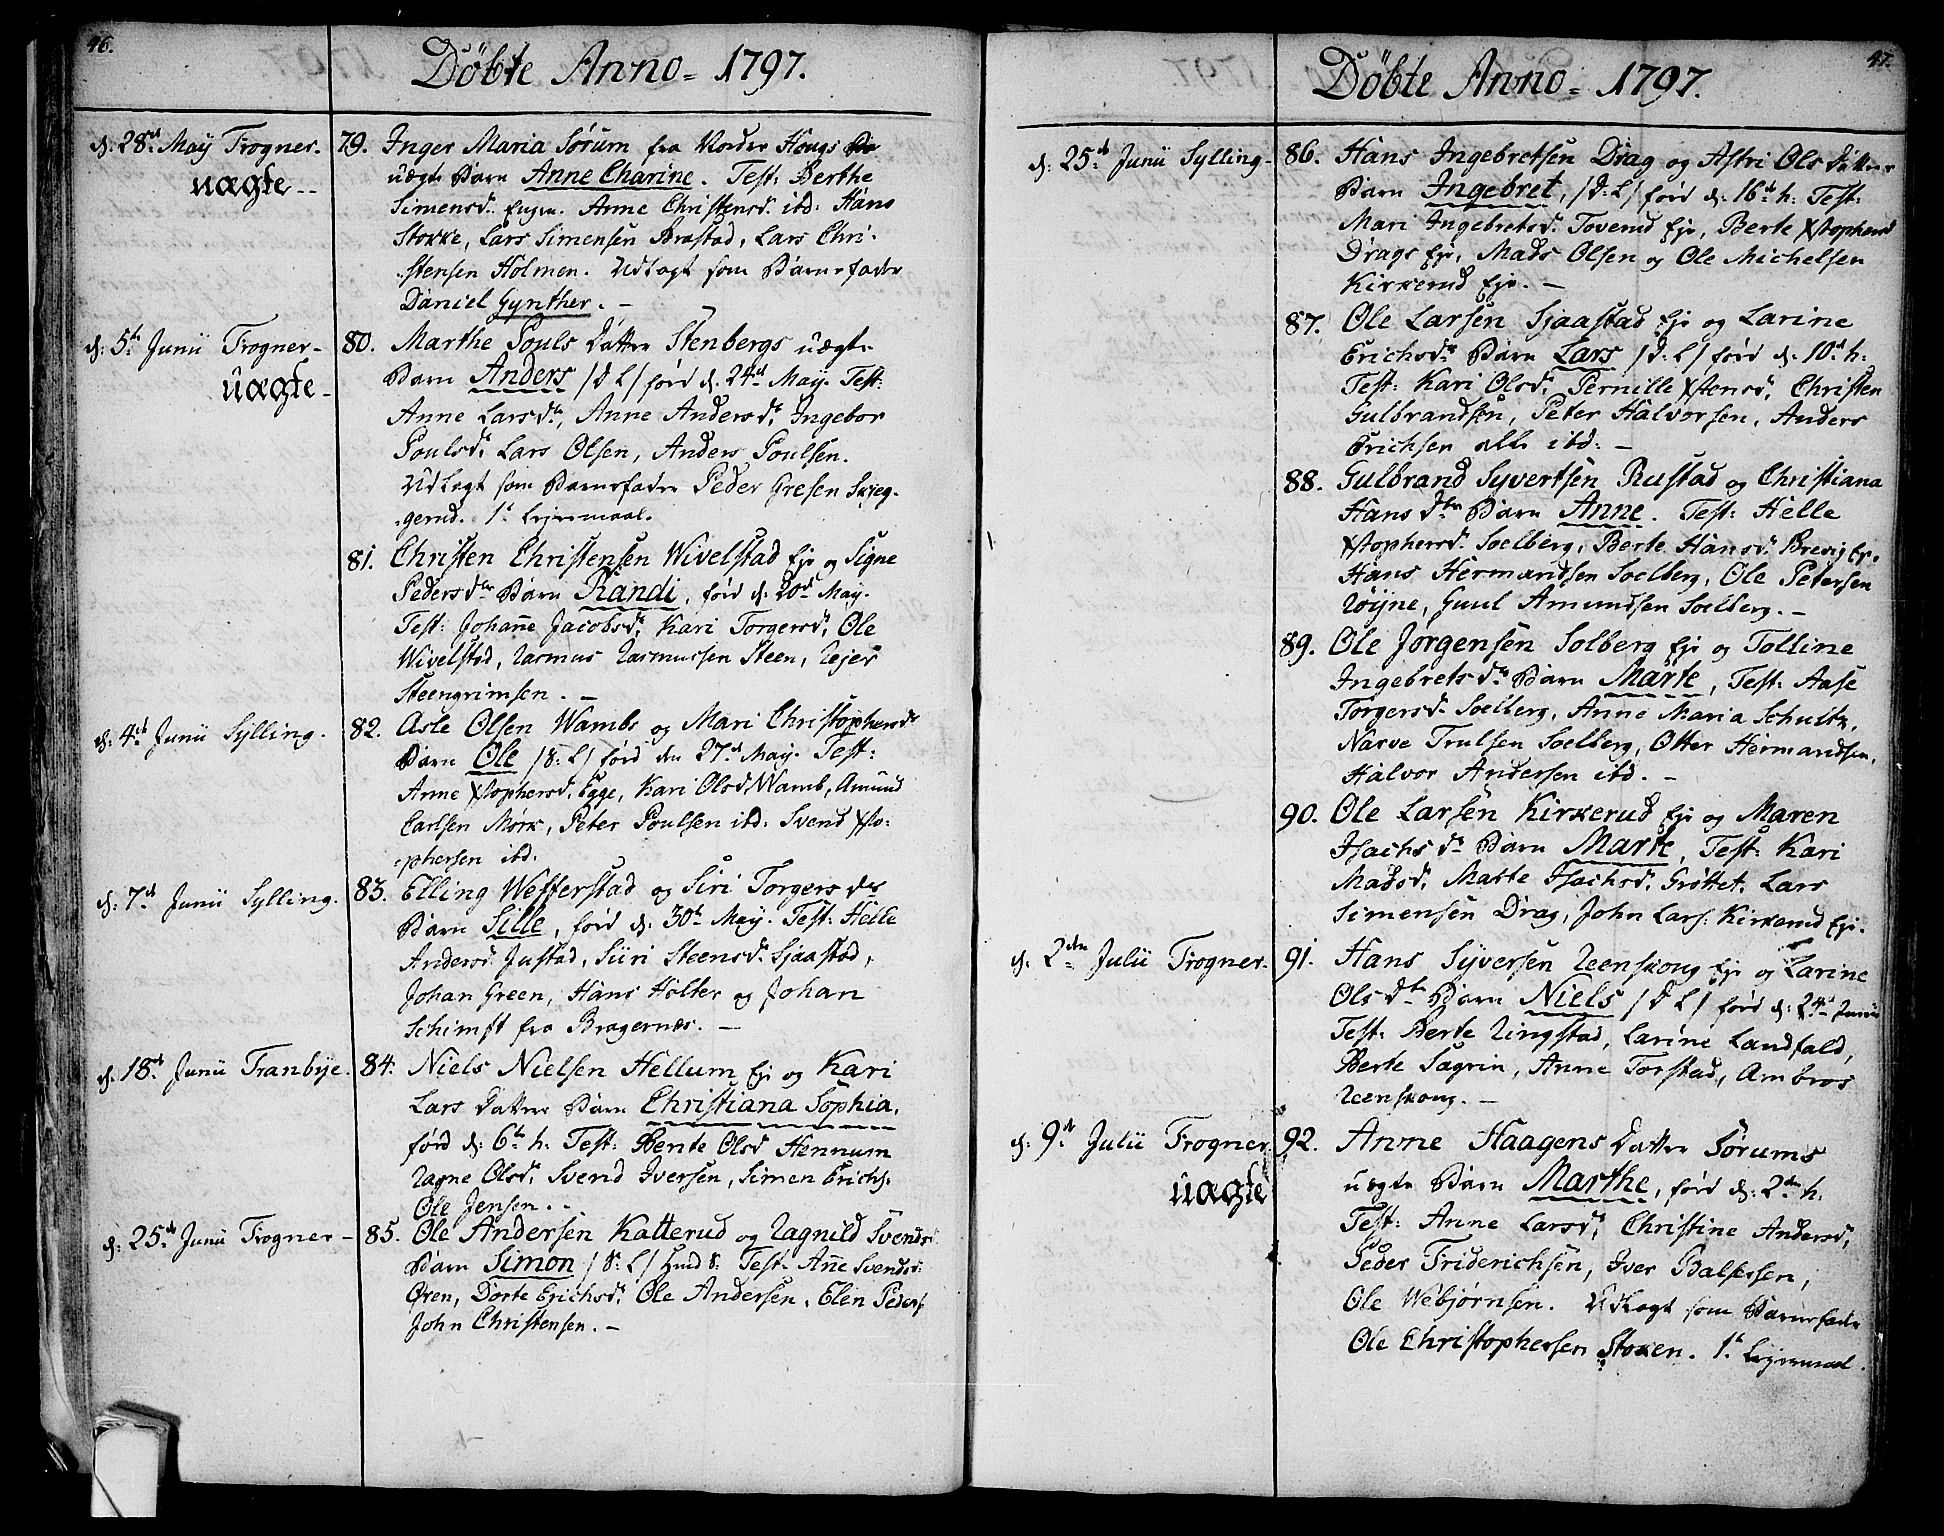 46.
Döbte Anno = 1797.
d: 28de May Trogner. 79. Inger Maria Sørum fra Norder Hougs
uægte -- uægte Barn Anne Charine. Test: Berthe
Simensd. Anne Christensd. ibd: Hans
Stokke, Lars Simensen Brastad, Lars Chri-
stensen Holmen. Udlagt som Barnefader
Daniel Gynther. -
d: 5te Junii Trogner - 80. Marthe Pouls Datter Stenbergs uægte
uægte - Barn Anders /d L/ förd d: 24de May. Test:
Anne Larsdr, Anne Andersdr Ingebor
Poulsdr Lars Olsen, Anders Poulsen.
Udlagt som Barnefader Peder Gresen Skjeg-
gerud. 1te Lejermaal.
81. Christen Christensen Wivelstad Eje og Signe
Pedersdtr Barn Randi, förd d: 20de May.
Test: Johañe Jacobsdr, Kari Torgersdr, Ole
Wivelstad, Rasmus Rasmussen Steen, Rejer
Steengrimsen. -
d: 4de Junii Sylling. 82. Asle Olsen Wambs og Mari Christophersdr
Barn Ole /S: L/ förd den 27de May. Test:
Anne Xstophersd. Egge, Kari Olsd Wamb, Amund
Carlsen Mørk, Peter Poulsen ibd: Svend Xsto-
phersen ibd.
d: 7de Junii Sylling. 83. Elling Wefferstad og Siri Torgers dr
Barn Sille, förd d: 30te May. Test: Helle
Andersd. Justad, Siiri Steensd. Sjaastad,
Johan Green, Hans Holter og Johan
Schimft fra Bragernæs. -
d: 18de Junii Tranbÿe. 84. Niels Nielsen Hellum Eje og Kari
Lars Datters Barn Christiana Sophia,
förd d: 6te h: Test: Bente Olsd Hennum
Ragne Olsdr, Svend Iversen, Simen Erichs.
Ole Jensen. -
d: 25de Junii Trogner - 85. Ole Andersen Katterud og Ragnild Svendsd
Barn Simon /S: L/ Test: Añe Svendsd:
Ören, Dorte Erichsdr, Ole Andersen, Elen Peders
John Christensen. -
47.
Döbte Anno = 1797.
d: 25de Junii Sylling - 86. Hans Ingebretsen Drag og Astri Ols Datters
Barn Ingebret, /d: L/ förd d: 16de h: Test:
Mari Ingebretsd. Toverud Eje, Berte Xstophersd
Drags Eje, Mads Olsen og Ole Michelsen
Kirkerud Eje. -
87. Ole Larsen Sjaastad Eje og Larine
Erichsdr Barn Lars /d: L/ förd d: 10de h:
Test: Kari Olsdr, Pernille Xstensdr, Christen
Gulbrandsen, Peter Halvorsen, Anders
Erichsen alle ibd: -
88. Gulbrand Syvertsen Rustad og Christiana
Hans dtr Barn Anne. Test: Helle
Xstophersd. Soelberg, Berte Hansd. Brevig Ej.
Hans Hermandsen Soelberg, Ole Petersen
Röÿne, Guul Amundsen Soelberg. -
89. Ole Jorgensen Solberg Eje og Tolline
Ingebrets dr Barn Marte, Test: Aase
Torgersd. Soelberg, Anne Maria Schultz,
Narve Trulsen Soelberg, Otter Hermandsen,
Halvor Andersen ibd. -
90. Ole Larsen Kirkerud Eje og Maren
Isachs dr Barn Marte, Test: Kari
Madsdr, Marte Isachsdr, Grøttet, Lars
Simensen Drag, John Lars: Kirkerud Eje.
d: 2den Julii Trogner. 91. Hans Syversen Reenskoug Eje og Larine
Ols dtr Barn Niels /d L/ förd d: 24de Junii
Test: Berte Ringstad, Larine Landfald,
Berte Sagrin, Anne Torstad, Ambros
Reenskoug. -
d: 9de Julii Trogner 92. Anne Haagens Datter Sørums
uægte uægte Barn Marthe, förd d: 2den h.
Test: Anne Larsdr, Christine Andersdr,
Peder Friderichsen, Iver Balsersen,
Ole Webjørnsen. Udlagt som Barnefader
Ole Christophersen Stoken. 1te Lejermaal.